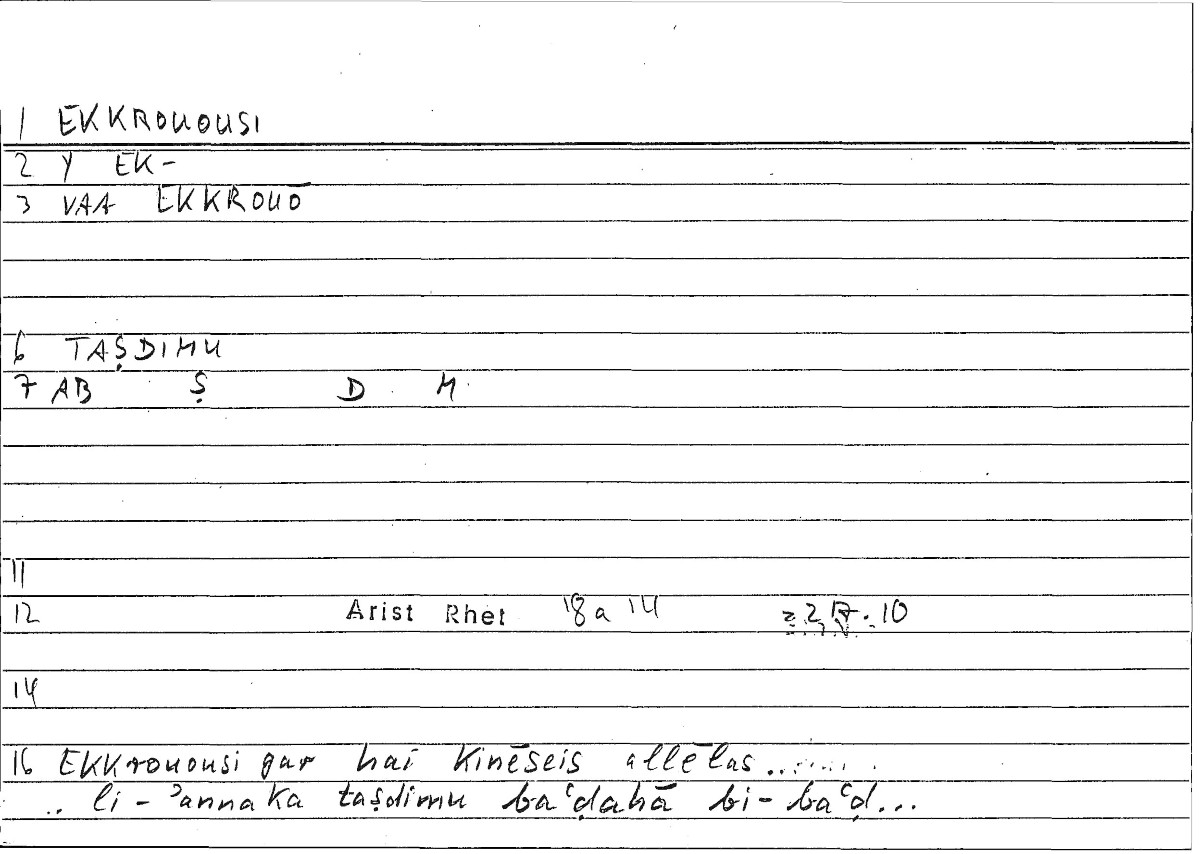 1 EKKROUOUSI
2 Y EK-
3 VAA EKKROUŌ
6 TAṢDIMU
7 AB Ṣ D M
11
12 Arist Rhet 18a 14 217.10
14
16 EKKrouousi gar hai Kinēseis allēlas.......
.. li-ʾannaka taṣdimu baʿḍahā bi-baʿḍ...